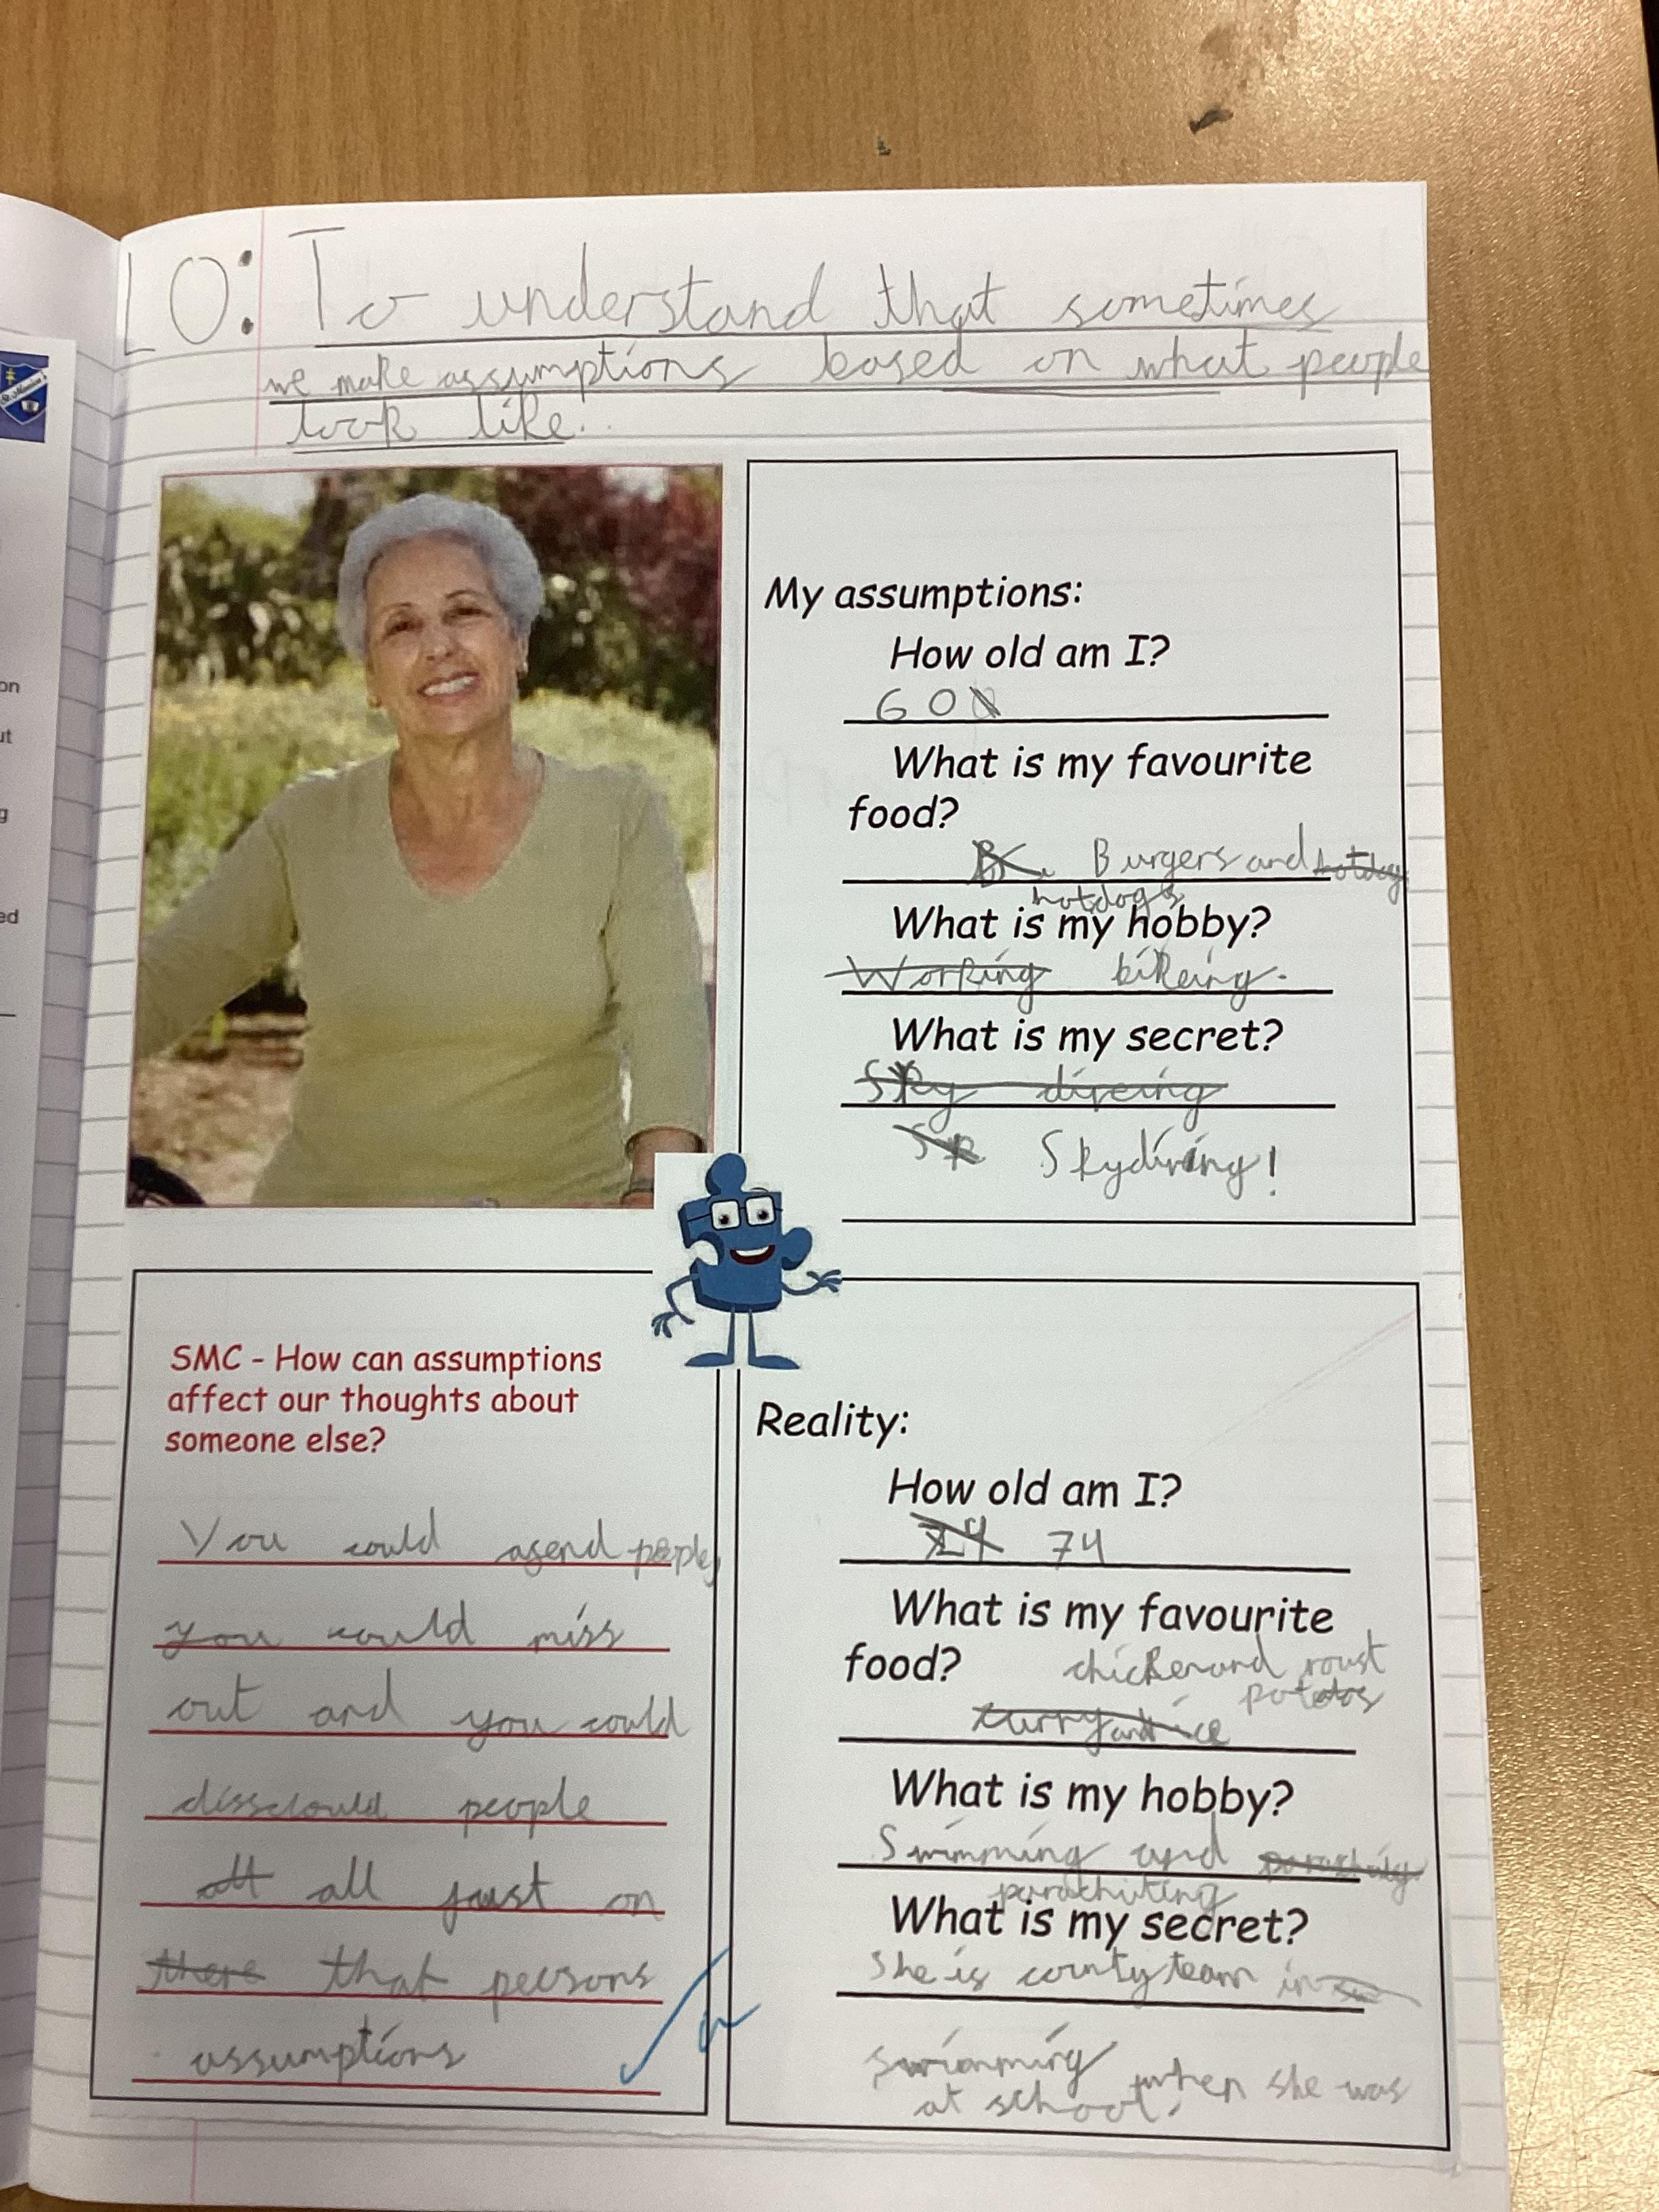 LO: To understand that sometimes
we make assumptions based on what people
look like.
My assumptions:
How old am I?
60
What is my favourite
food?
Burgers and hotdog
hotdogs
What is my hobby?
Working bikeing.
What is my secret?
Sky diveing
Sk Skydiving!
SMC - How can assumptions
affect our thoughts about
someone else?
You could ofend people,
you could miss
out and you could
people
all just on
there that persons
assumptions
Reality:
How old am I?
74
What is my favourite
food? chicken and roast
curry and rice
What is my hobby?
Swimming and
parachuting
What is my secret?
She is county team in
swimming when she was
at school.
on
ut
g
ed